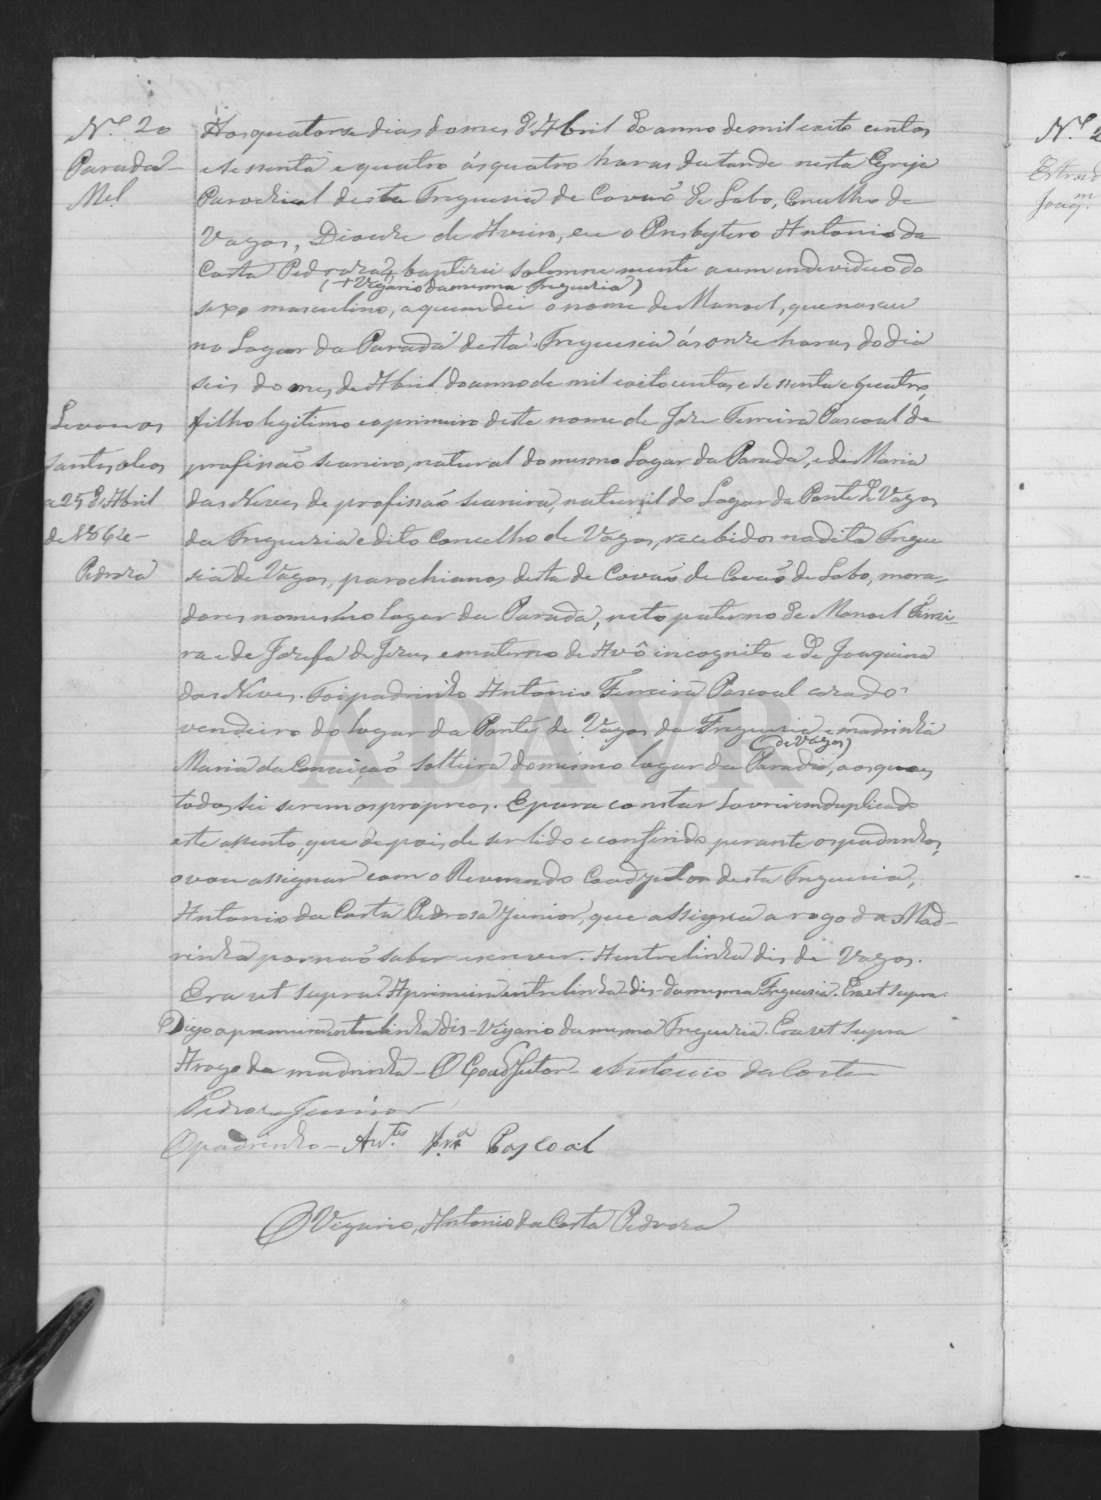 N.º 20
Parada -
M.el
Levou os
santos oleos
a 25 d'Abril
de 1864 -
Pedroza
Aos quatorze dias do mes d'Abril do anno de mil oito centos
e sessenta e quatro ás quatro horas da tarde nesta Egreja
Parochial desta Freguesia de Covaõ de Lobo, Concelho de
Vagos, Diocese de Aveiro, eu o Presbytero Antonio da
Costa Pedroza, baptizei solemnemente a um individuo do
(+ Vigario da mesma Freguesia)
sexo masculino, a quem dei o nome de Manoel, que nasceu
no Lugar da Parada desta Freguesia ás onze horas do dia
seis do mes de Abril do anno de mil oito centos e sessenta e quatro,
filho legitimo e o primeiro deste nome de José Ferreira Pascoal de
profissaõ seareiro, natural do mesmo Lugar da Parada, e de Maria
das Neves de profissaõ seareira, natural do Lugar da Ponte de Vagos
da Freguesia e dito Concelho de Vagos, recebidos na dita Fregue
sia de Vagos, parochianos desta de Covaõ de Covaõ de Lobo, mora-
dores no mesmo lugar da Parada, neto paterno de Manoel Ferrei-
ra e de Josefa de Jesus, e materno de Avô incognito e de Joaquina
das Neves. Foi padrinho Antonio Ferreira Pascoal casado
vendeiro do lugar da Ponte de Vagos da Freguesia e madrinha
(de Vagos)
Maria da Conceiçaõ solteira do mesmo lugar da Parada, aos quaes
todos sei serem os proprios. E para constar lavrei em duplicado
este assento, que depois de ser lido e conferido perante os padrinhos,
o vou assignar com o Reverendo Coadjutor desta Freguesia,
Antonio da Costa Pedrosa Junior, que assigna a rogo da Mad-
rinha por naõ saber escrever. A entrelinha diz de Vagos.
Era ut supra. A primeira entrelinha diz da mesma Freguesia. Era ut supra.
Digo a primeira entrelinha diz - Vigario da mesma Freguesia. Era ut supra
A rogo da madrinha - O Coadjutor - Antonio da Costa
Pedroza Junior
O padrinho - Ant.to Frra Pascoal
O Vigario, Antonio da Costa Pedroza
ADAVR
N.º 2
Joaq.m